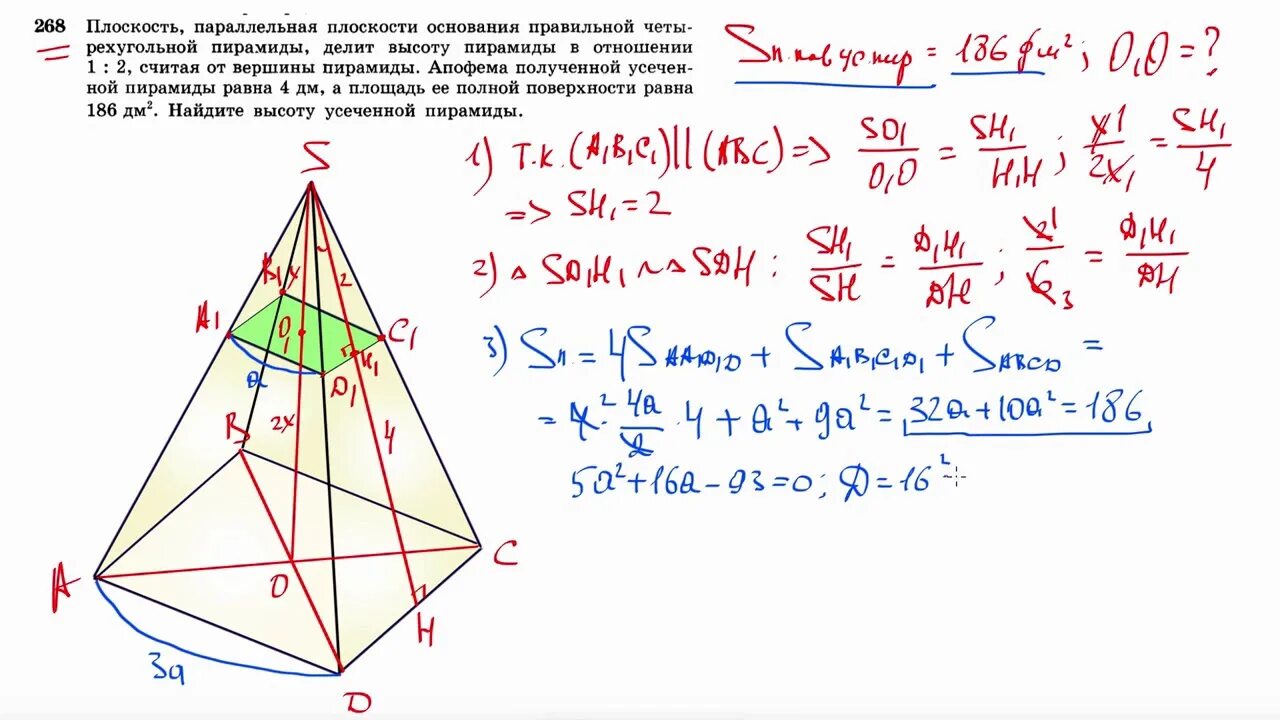 268 Плоскость, параллельная плоскости основания правильной четы-
рехугольной пирамиды, делит высоту пирамиды в отношении
1 : 2, считая от вершины пирамиды. Апофема полученной усечен-
ной пирамиды равна 4 дм, а площадь ее полной поверхности равна
186 дм². Найдите высоту усеченной пирамиды.
Sп.пов.ус.пир = 186 дм²; O₁O = ?
1) Т.к. (A₁B₁C₁) || (ABC) => SO₁/O₁O = SH₁/H₁H ; x1/2x₁ = SH₁/4
=> SH₁ = 2
2) △ SD₁H₁ ~ △ SDH : SH₁/SH = D₁H₁/DH ; 2 1/6 3 = D₁H₁/DH
3) Sп = 4S AA₁D₁D + S A₁B₁C₁D₁ + S ABCD =
= 4² · 4a/2 · 4 + a² + 9a² = 32a + 10a² = 186
5a² + 16a - 93 = 0 ; D = 16² -
S
B₁
x
2
A₁
O₁
C₁
H₁
a
D₁
B
2x
4
A
O
C
H
3a
D